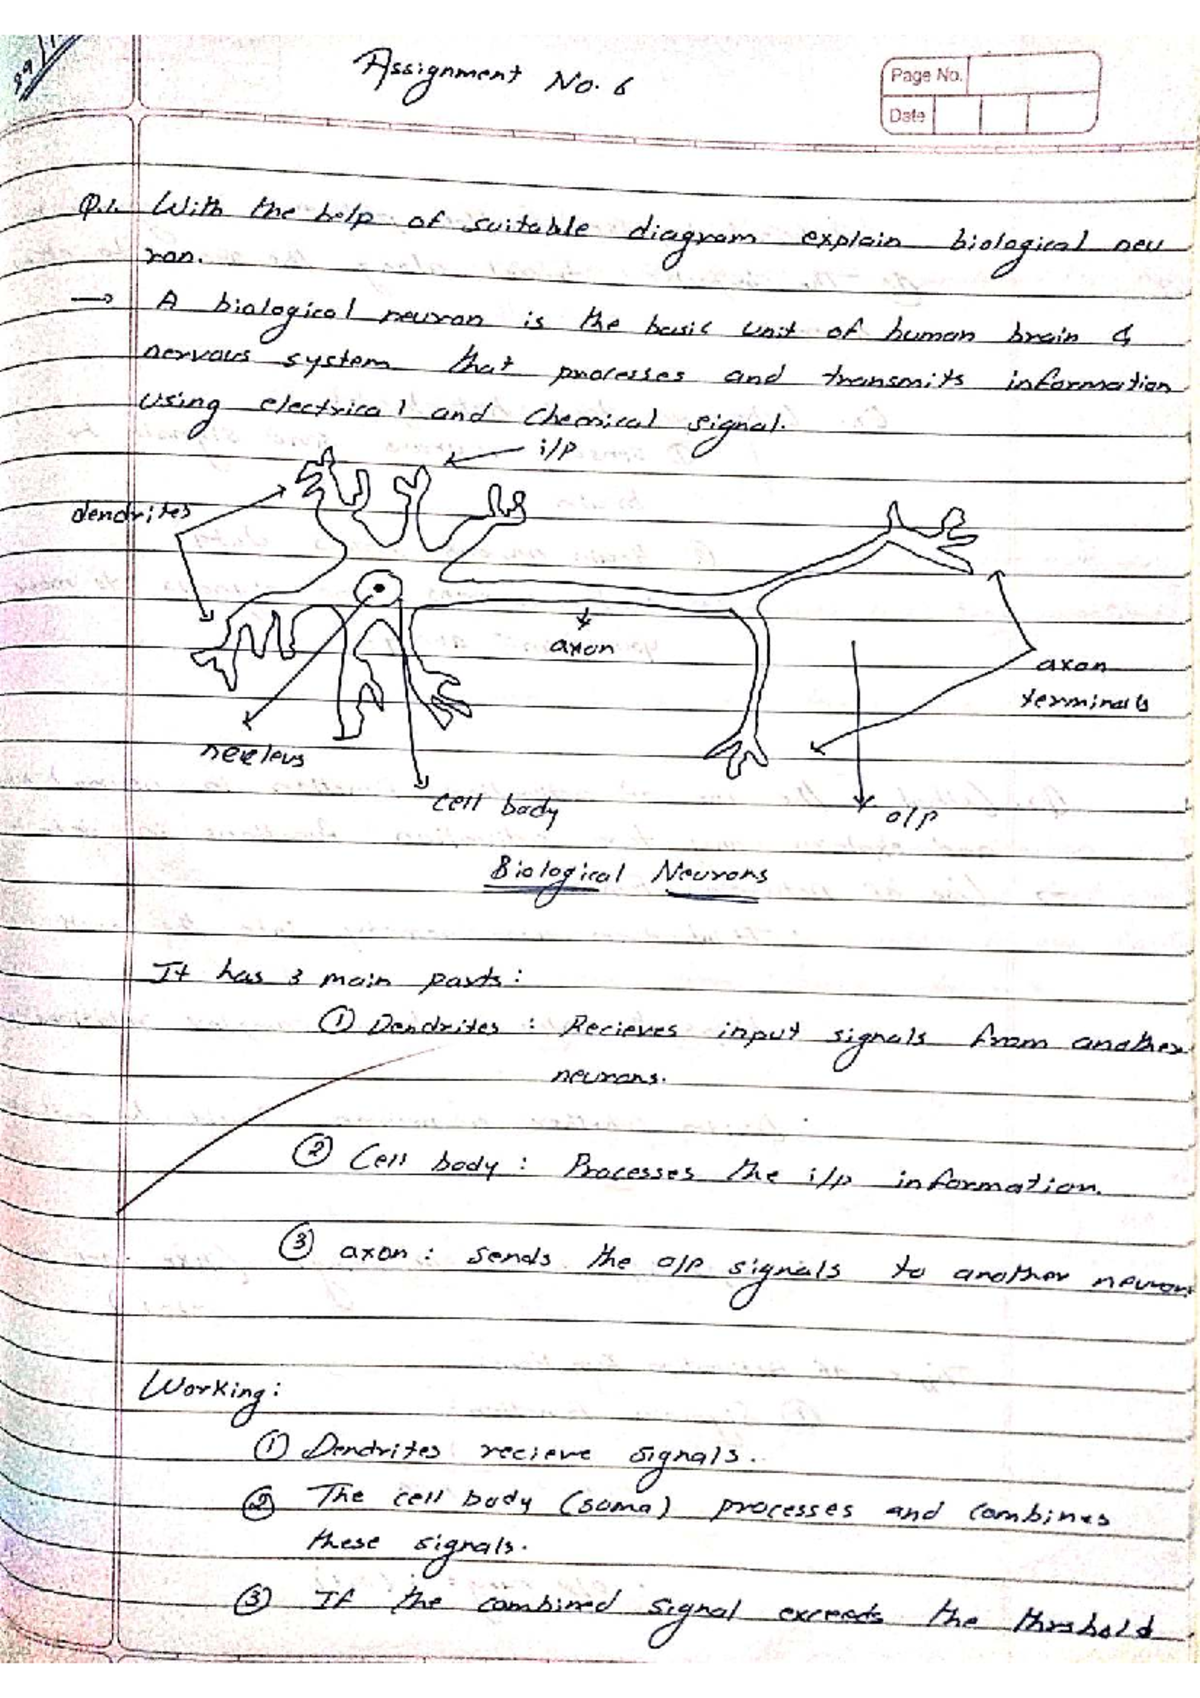 Assignment No. 6
Page No.
Date
Q.1. With the help of suitable diagram explain biological neu
ron.
→ A biological neuron is the basic unit of human brain &
nervous system that processes and transmits information
using electrical and chemical signal.
i/p
dendrites
axon
axon
terminals
nucleus
cell body
o/p
Biological Neurons
It has 3 main parts:
① Dendrites : Recieves input signals from another
neurons.
② Cell body : Processes the i/p information.
③ axon : sends the o/p signals to another neuron
Working:
① Dendrites recieve signals.
② The cell body (soma) processes and combines
these signals.
③ If the combined signal exceeds the thrshold